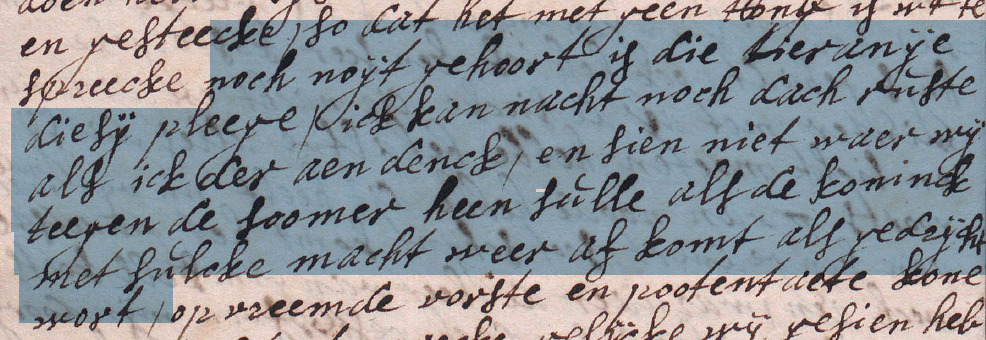 en gesteecke, so dat het met geen tong is wt te
spreecke noch noÿt gehoort is die tieranÿe
diesÿ pleege / ick kan nacht noch dach ruste
als ick der aen denck, en sien niet waer wÿ
teegen de soomer heen sulle als de koninck
met sulcke macht weer af komt als gedrÿcht
wort, op vreemde vorste en pootentaete kone
wÿ gesien heb